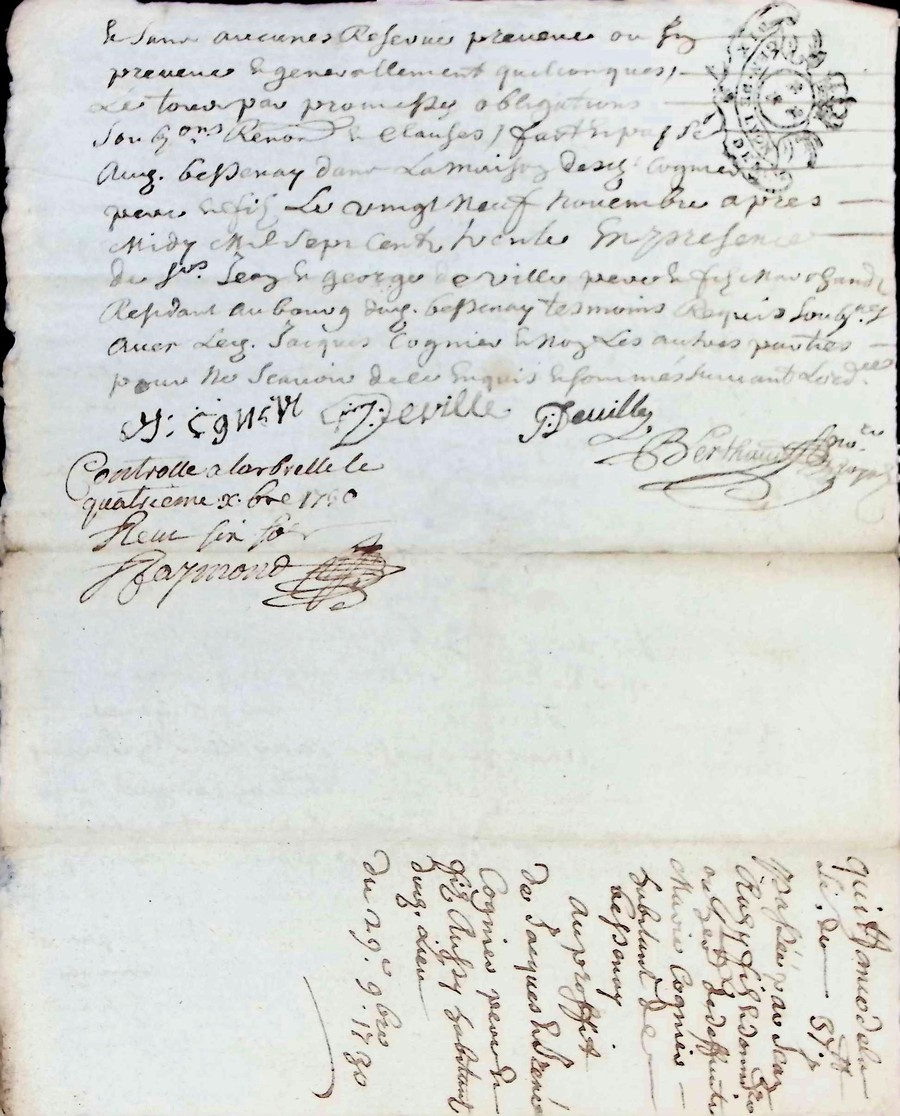 et sans aucunes Reserve preveue ou 
preveue et generallement quelconques,
Le tout par promesses obligations
Soub.ons Renon.on et clauses, fait et passé
Aug. bessenay dans La maison desd. Cognier
pere et fils Le vingt Neuf Novembre apres
Midy Mil Sept Cent trente En presence
de Srs Jean et george deville pere et fils Marchands
Residant au bourg dug. bessenay tesmoins Requis Soub.nes
avec Led. Jacques Cognier et Non Les autres parties
pour Ne Scavoir de ce Enquis et sommés suivant Lord.ces
J: Cognier Deville J. Deville
Berthaud no.re
Controlle a larbrelle le
quatrieme x.bre 1730
Receu six sols
Raymond
quittance de la
Passé par Jean
fils de
et de deffunte
Marie Cognier
habitant de
bessenay
au proffit
de Jacques et
Cognier pere et
fils Aussy habitant
dug. Lieu
du 29.e 9.bre 1730